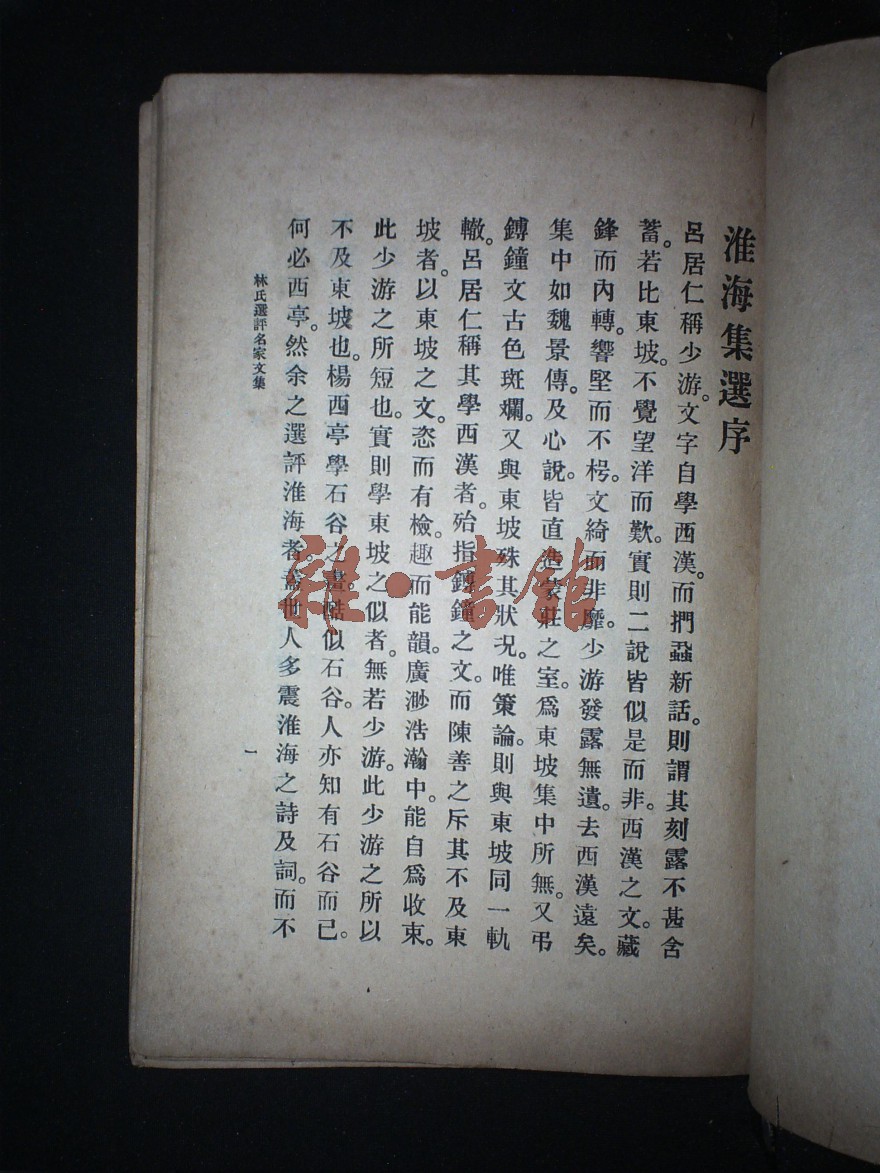 淮海集選序
呂居仁稱少游。文字自學西漢。而捫蝨新話。則謂其刻露不甚含
蓄。若比東坡。不覺望洋而歎。實則二說皆似是而非。西漢之文。藏
鋒而內轉。響堅而不枵。文綺而非靡。少游發露無遺。去西漢遠矣。
集中如魏景傳。及心說。皆直造蒙莊之室。爲東坡集中所無。又弔
鎛鐘文古色斑斕。又與東坡殊其狀况。唯策論。則與東坡同一軌
轍。呂居仁稱其學西漢者。殆指鎛鐘之文。而陳善之斥其不及東
坡者。以東坡之文。恣而有檢。趣而能韻。廣渺浩瀚中。能自爲收束。
此少游之所短也。實則學東坡之似者。無若少游。此少游之所以
不及東坡也。楊西亭學石谷之畫。酷似石谷。人亦知有石谷而已。
何必西亭。然余之選評淮海者。蓋世人多震淮海之詩及詞。而不
林氏選評名家文集
一
雜·書館